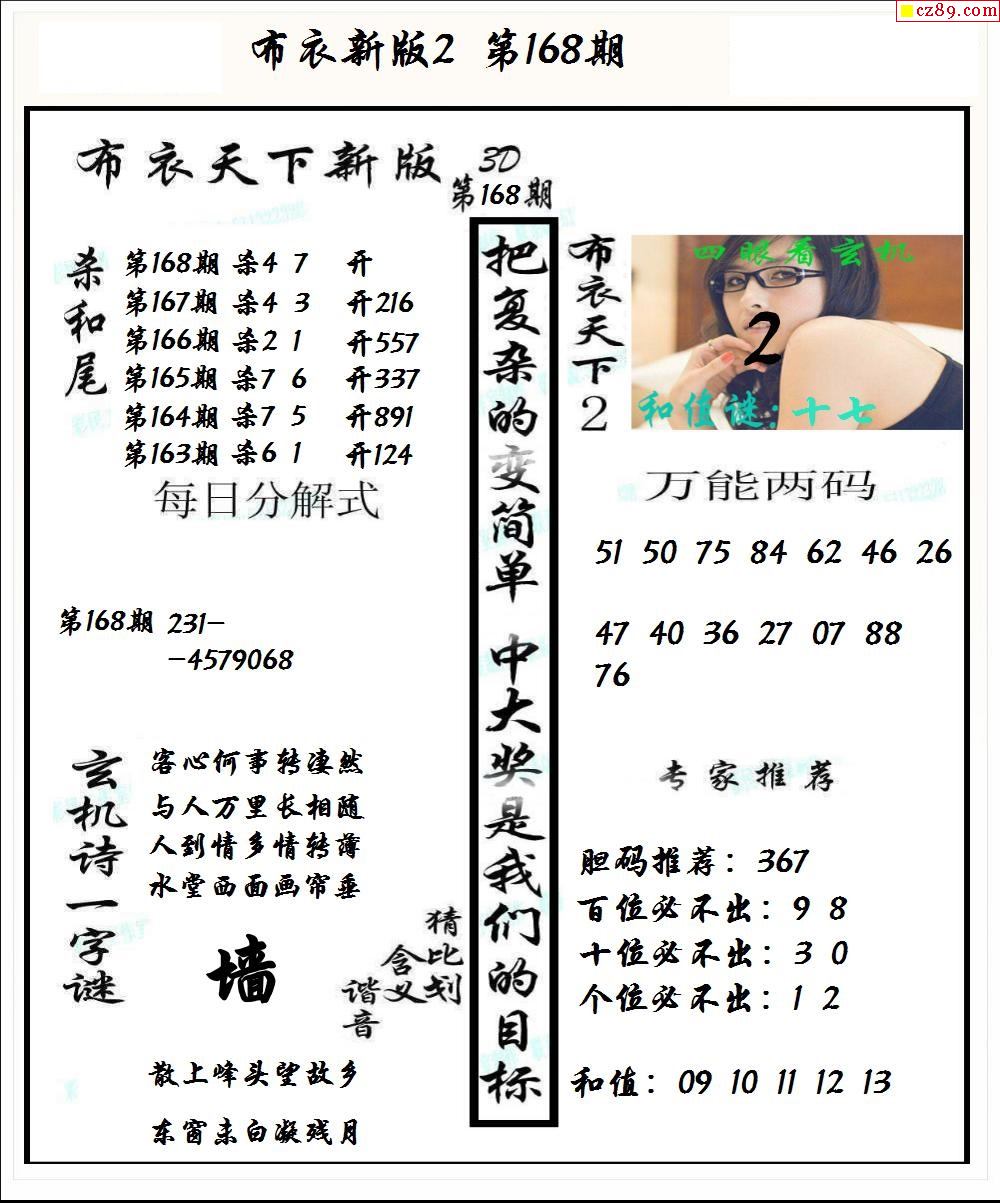 cz89.com
布衣新版2 第168期
布衣天下新版 3D
第168期
杀和尾
第168期 杀4 7 开
第167期 杀4 3 开216
第166期 杀2 1 开557
第165期 杀7 6 开337
第164期 杀7 5 开891
第163期 杀6 1 开124
每日分解式
第168期 231-
-4579068
玄机诗一字谜
客心何事转凄然
与人万里长相随
人到情多情转薄
水堂西面画帘垂
墙
猜比划
含义
谐音
散上峰头望故乡
东窗未白凝残月
把复杂的变简单 中大奖是我们的目标
布衣天下2
四眼看玄机
2
和值谜:十七
万能两码
51 50 75 84 62 46 26
47 40 36 27 07 88
76
专家推荐
胆码推荐：367
百位必不出：9 8
十位必不出：3 0
个位必不出：1 2
和值：09 10 11 12 13